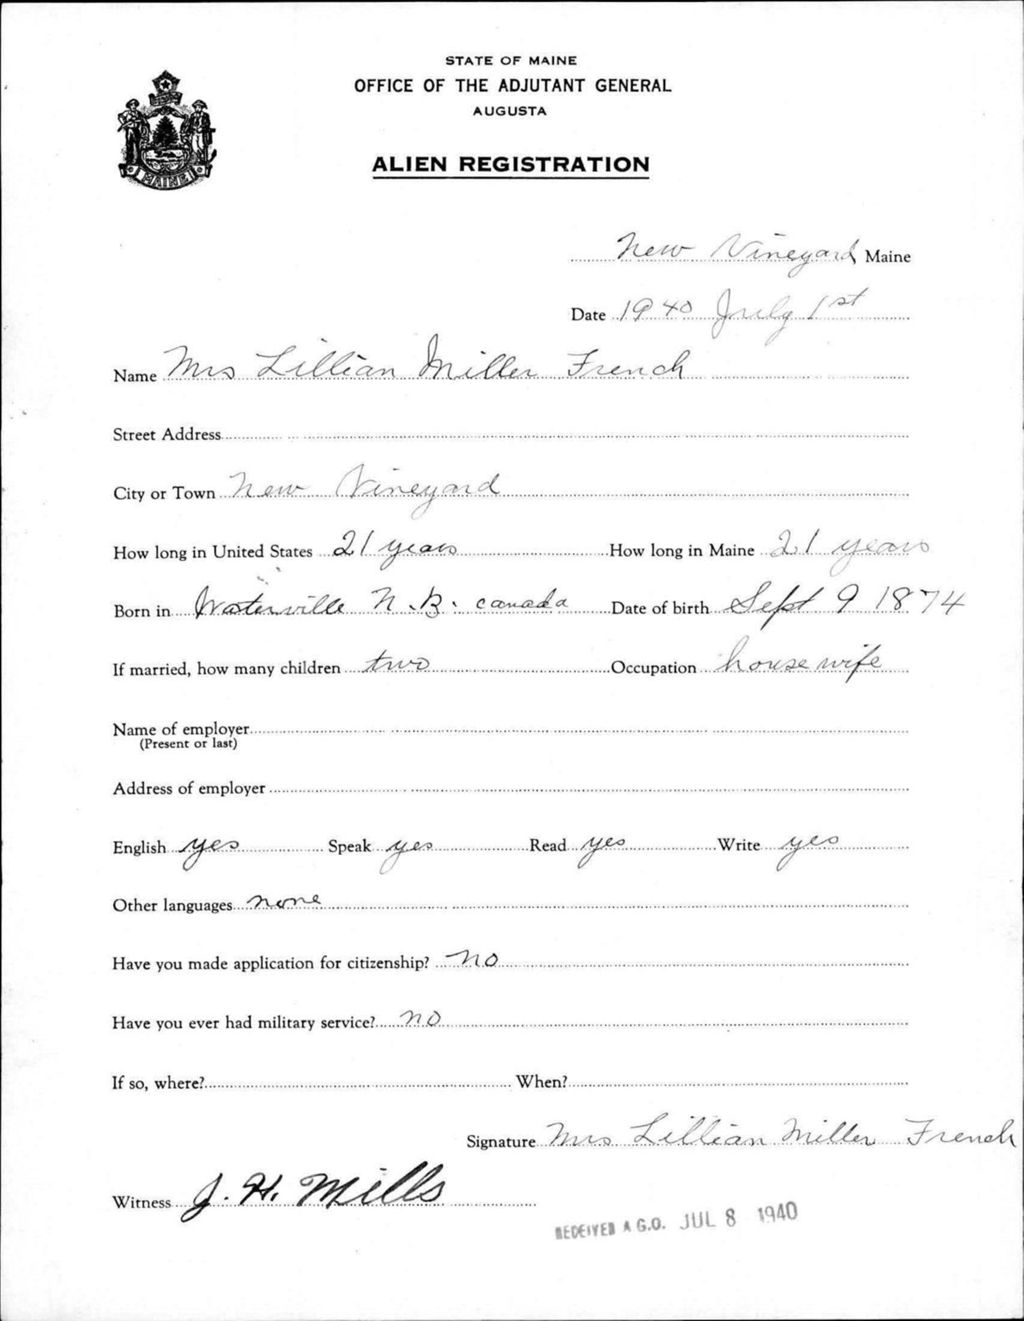 STATE OF MAINE
OFFICE OF THE ADJUTANT GENERAL
AUGUSTA
MAINE
ALIEN REGISTRATION
New Vineyard Maine
Date 1940 July 1st
Name Mrs Lillian Miller French
Street Address
City or Town New Vineyard
How long in United States 21 years How long in Maine 21 years
Born in Waterville N.B. Canada Date of birth Sept 9 1874
If married, how many children two Occupation house wife
Name of employer
(Present or last)
Address of employer
English yes Speak yes Read yes Write yes
Other languages none
Have you made application for citizenship? No
Have you ever had military service? no
If so, where? When?
Signature Mrs Lillian Miller French
Witness J. H. Mills
RECEIVED A.G.O. JUL 8 1940